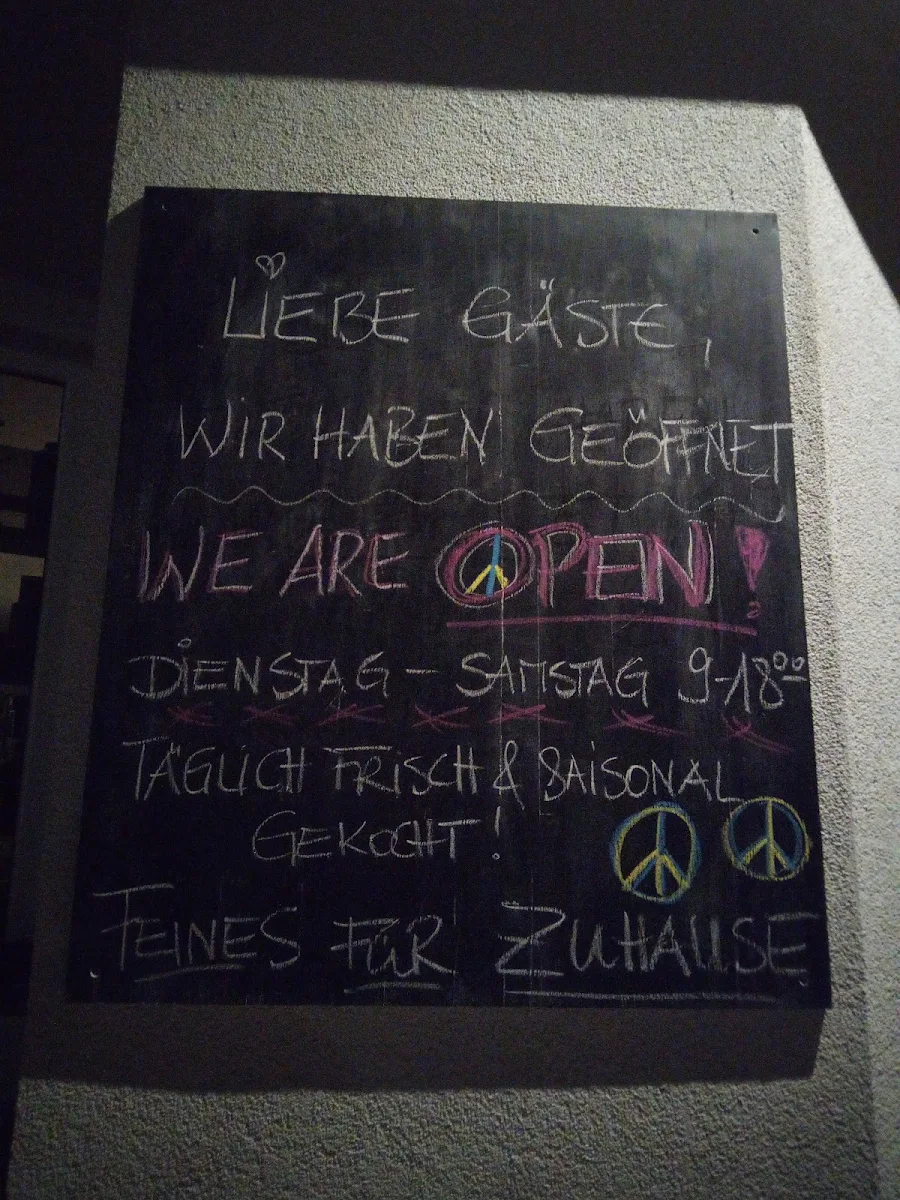 LIEBE GÄSTE,
WIR HABEN GEÖFFNET
WE ARE OPEN!
DIENSTAG - SAMSTAG 9-18⁰⁰
TÄGLICH FRISCH & SAISONAL
GEKOCHT!
FEINES FÜR ZUHAUSE